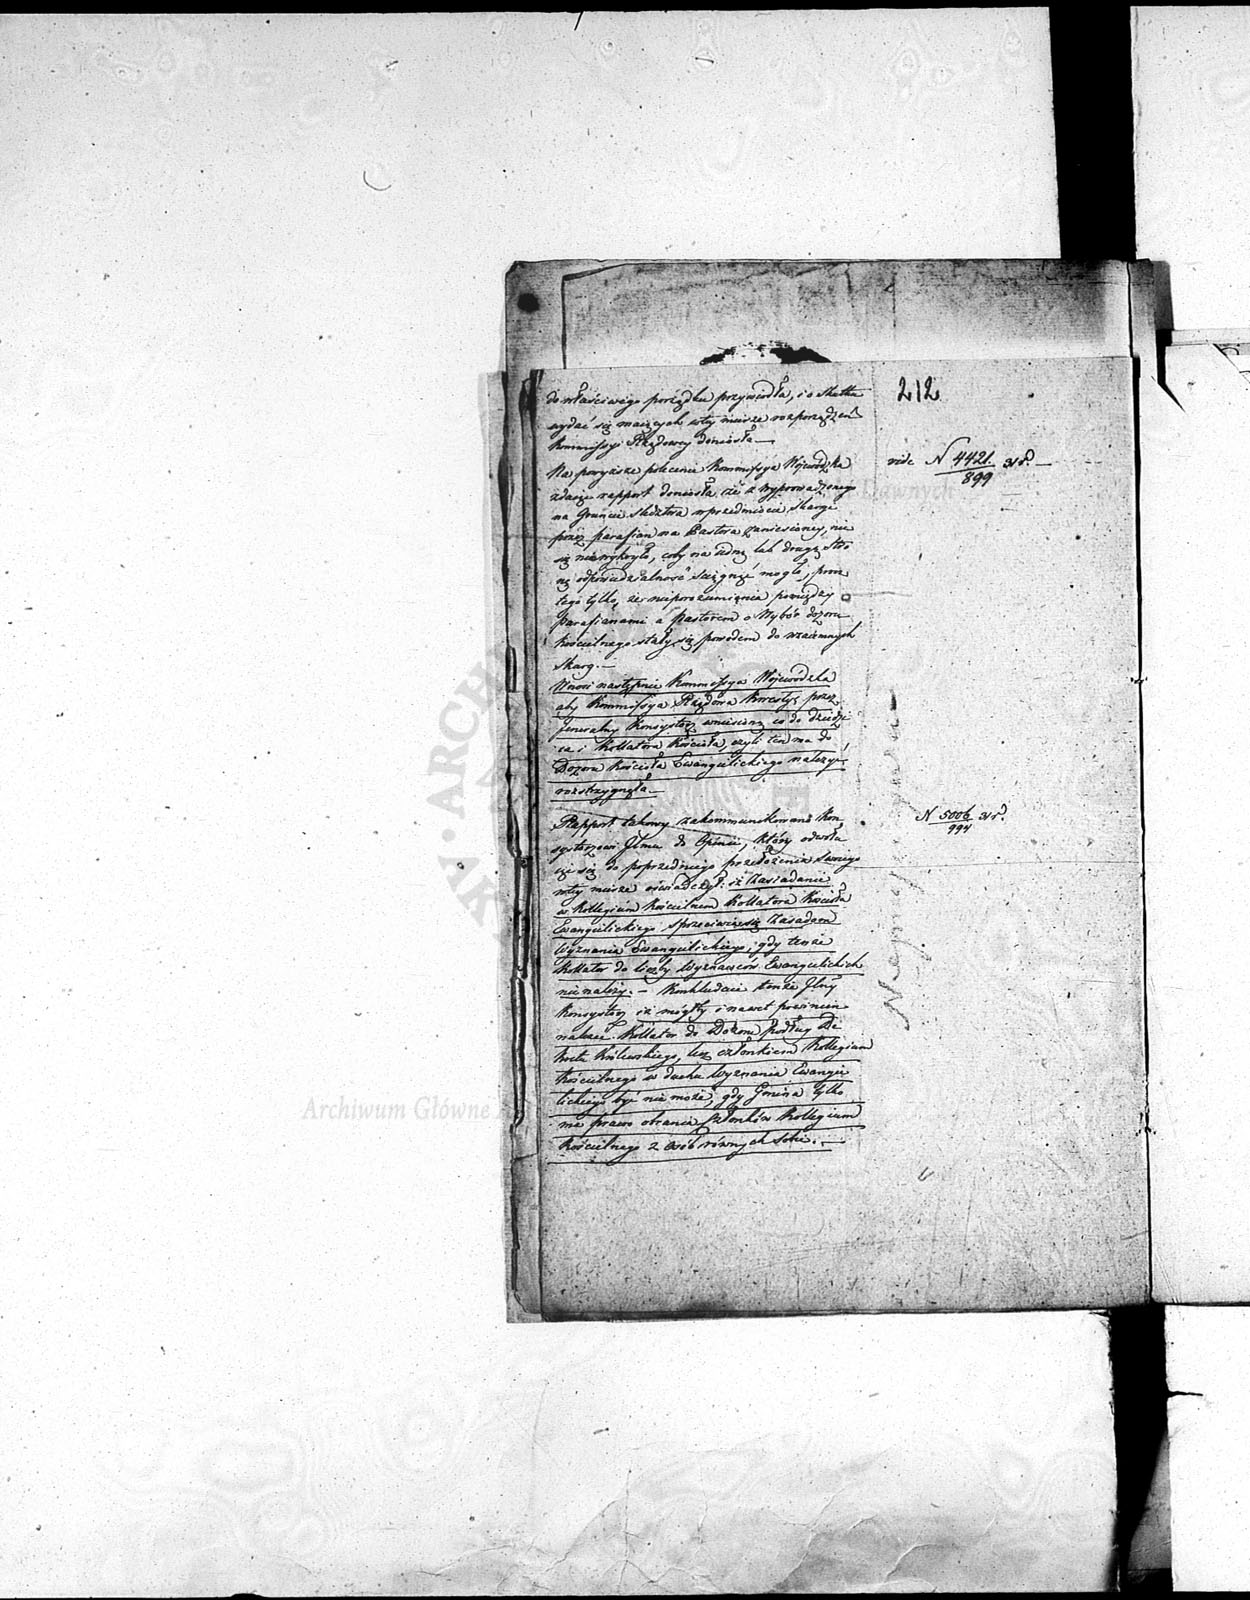 212
do właściwego porządku przywiodła, i o skutku
wydać się mających w tej mierze rozporządzeń
Kommissyi Rządowey doniosła.—
vide N 4421/899 318.—
Na powyższe polecenie Kommissya Wojewódzka
zdając rapport doniosła, że z wyprowadzonego
na Gruncie śledztwa w przedmiocie skargi
przez parafian na Pastora zaniesioney, nic
się nie wykryło, coby na iedną lub drugą stro
nę odpowiedzialność ściągnąć mogło, prócz
tego tylko, że nieporozumienia pomiędzy
parafianami a pastorem o Wybór dozoru
kościelnego stały się powodem do wzaiemnych
skarg.—
Wnosi następnie Kommissya Wojewódzka
aby Kommissya Rządowa kwestyę przez
Generalny Konsystorz wniesioną co do dziedzi
ca i Kollatora Kościoła, czyli ten ma do
Dozoru Kościoła Ewangelickiego należyć,
rozstrzygnęła.—
N 5006/994 318.
Rapport takowy zakommunikowano Kon
systorzowi Jlnemu do Opinii, który odwołu
iąc się do poprzedniego przedłożenia swoiego
w tey mierze oświadczył: iż Zasiadanie
w Kollegium Kościelnem Kollatora Kościoła
Ewangelickiego sprzeciwia się Zasadom
Wyznania Ewangelickiego, gdy tenże
Kollator do liczby Wyznawców Ewangelickich
nie należy.— Konkluduie tenże Jlny
Konsystorz iż mógłby i nawet powinien
należeć Kollator do Dozoru podług De
kretu Królewskiego, lecz członkiem Kollegium
Kościelnego w duchu Wyznania Ewange
lickiego być nie może, gdy Gmina tylko
ma prawo obrania Członków Kollegium
Kościelnego z osób równych sobie.—
Archiwum Główne A
Dawnych